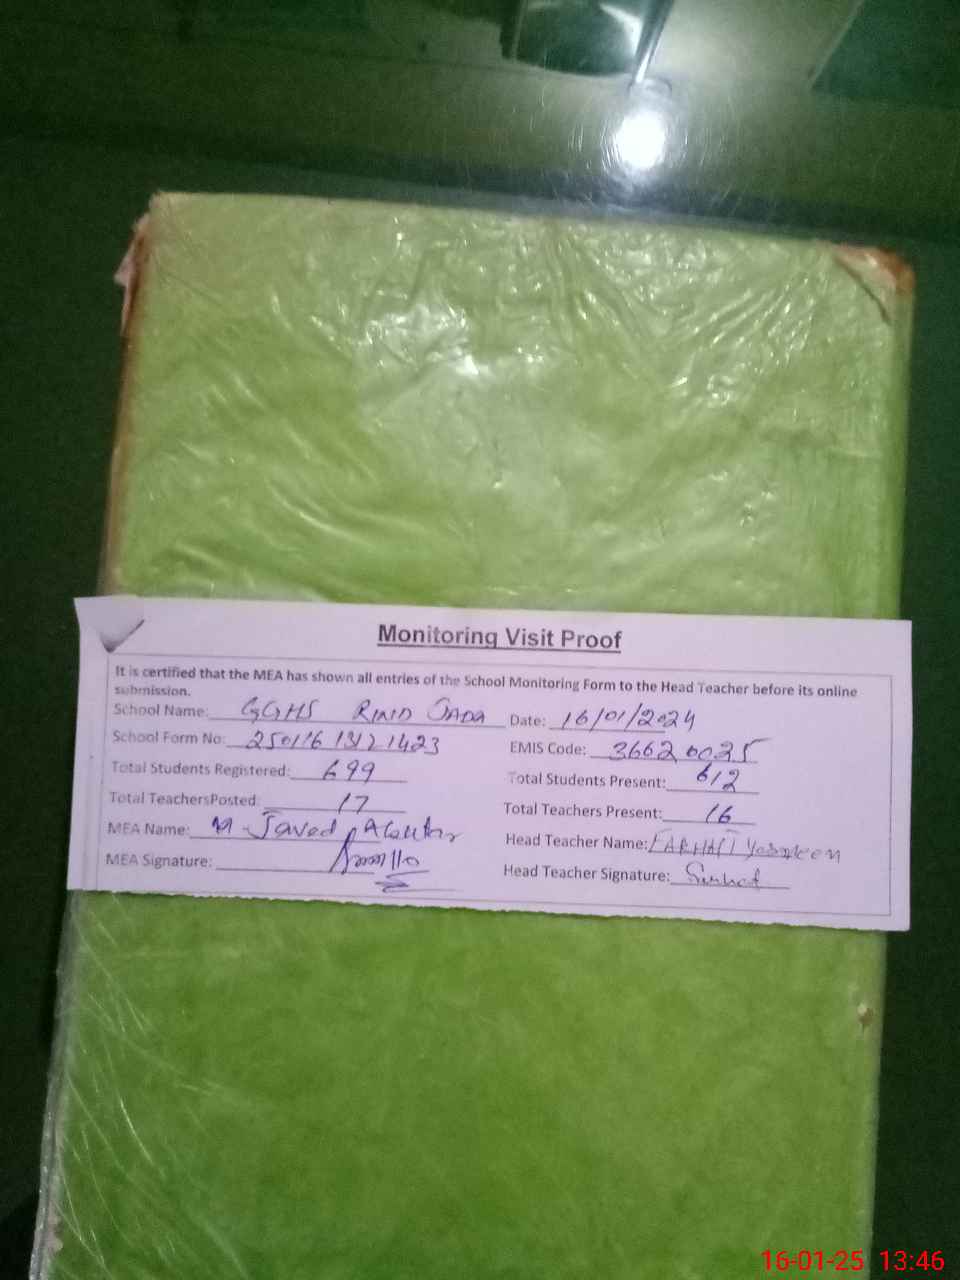 Monitoring Visit Proof
It is certified that the MEA has shown all entries of the School Monitoring Form to the Head Teacher before its online
submission.
School Name: GGHS RIND JADA Date: 16/01/2024
School Form No: 250116 13121423 EMIS Code: 36620025
Total Students Registered: 699 Total Students Present: 612
Total TeachersPosted: 17 Total Teachers Present: 16
MEA Name: M. Javed Akhtar Head Teacher Name: FARHAT Yasmeen
MEA Signature: Head Teacher Signature: Farhat
16-01-25 13:46